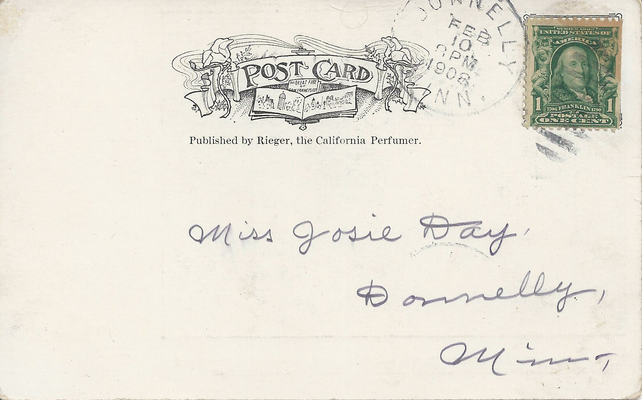 DONNELLY
FEB
10
2PM
1908
MINN.
UNITED STATES OF
AMERICA
FRANKLIN
1 1
POSTAGE
ONE CENT
POST CARD
Published by Rieger, the California Perfumer.
Miss Josie Day,
Donnelly,
Minn,